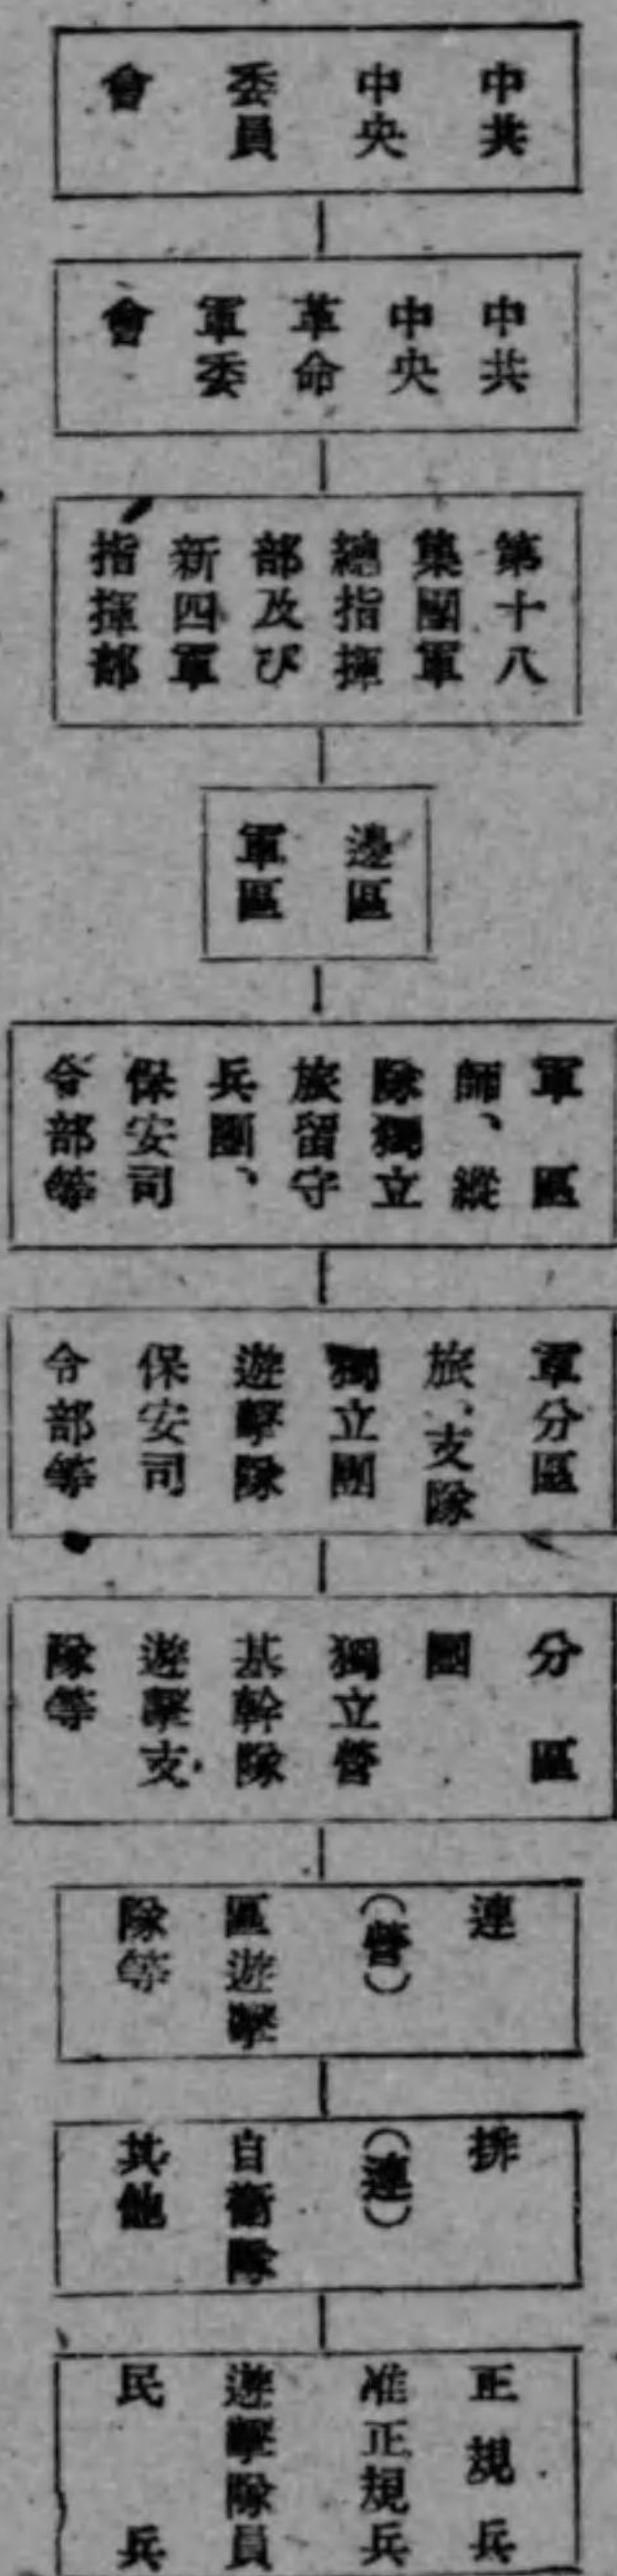 中共
中央
委員
會
中共
中央
革命
軍委
會
第十八
集團軍
總指揮
部及び
新四軍
指揮部
邊區
軍區
軍區
師、縱
隊獨立
旅留守
兵團、
保安司
令部等
軍分區
旅、支隊
獨立團
遊擊隊
保安司
令部等
分區
團
獨立營
基幹隊
遊擊支
隊等
連
(營)
區遊擊
隊等
排
(連)
自衞隊
其他
正規兵
准正規兵
遊擊隊員
民兵